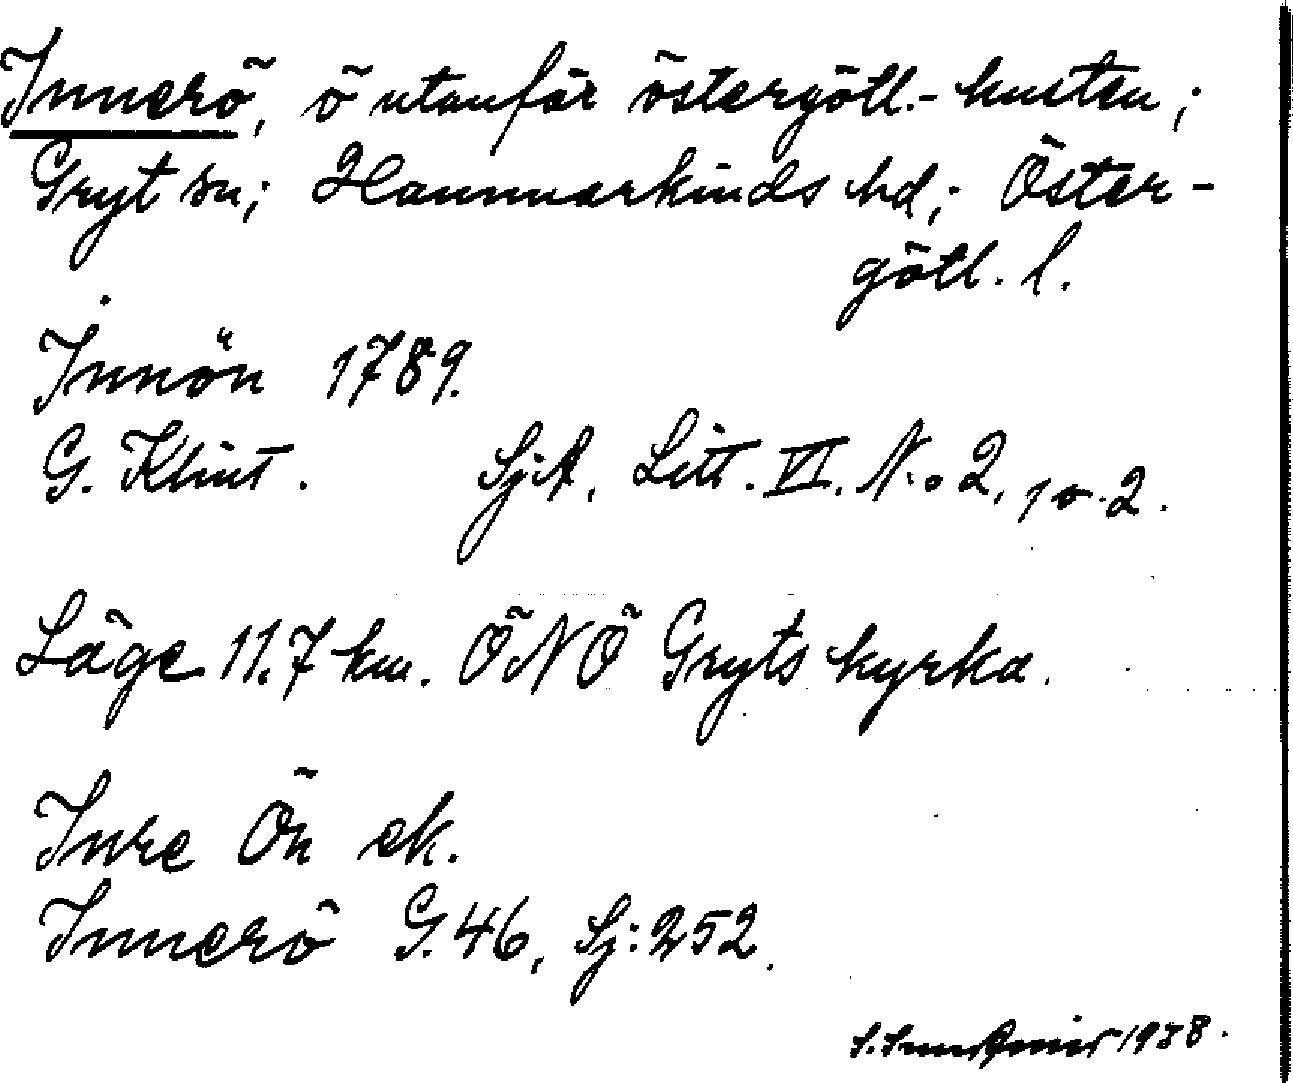 Innerö, ö utanför östergötl.-kusten;
Gryt sn; Hammarkinds hd; Öster-
götl. l.
Innön 1789.
G. Klint. SjA, Litt. VI. N.o 2, 1 o. 2.
Läge 11.7 km. ÖNÖ Gryts kyrka.
Inre Ön ek.
Innerö G. 46, Sj: 252.
1938.